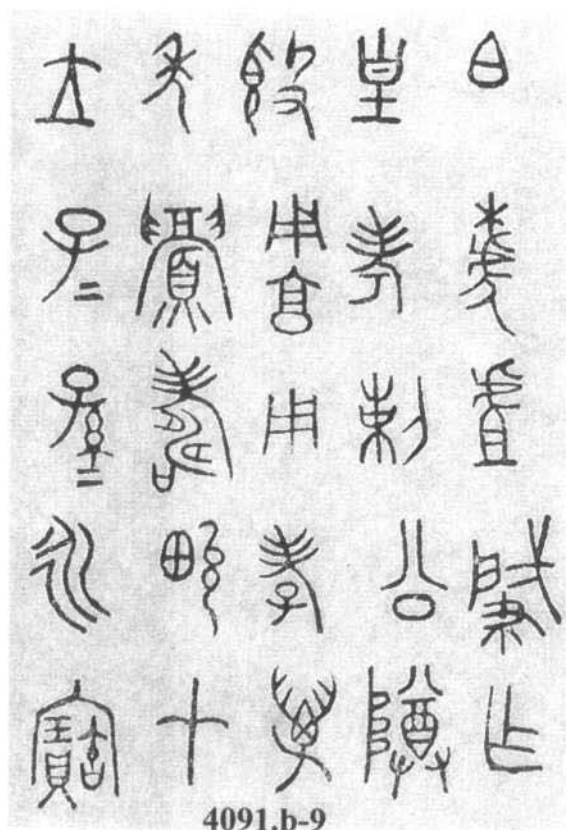 白椃虘肇乍
皇考剌公尊
𣪘用享用孝萬
年眉壽畯才
立子＝孫＝永寶
4091.b-9